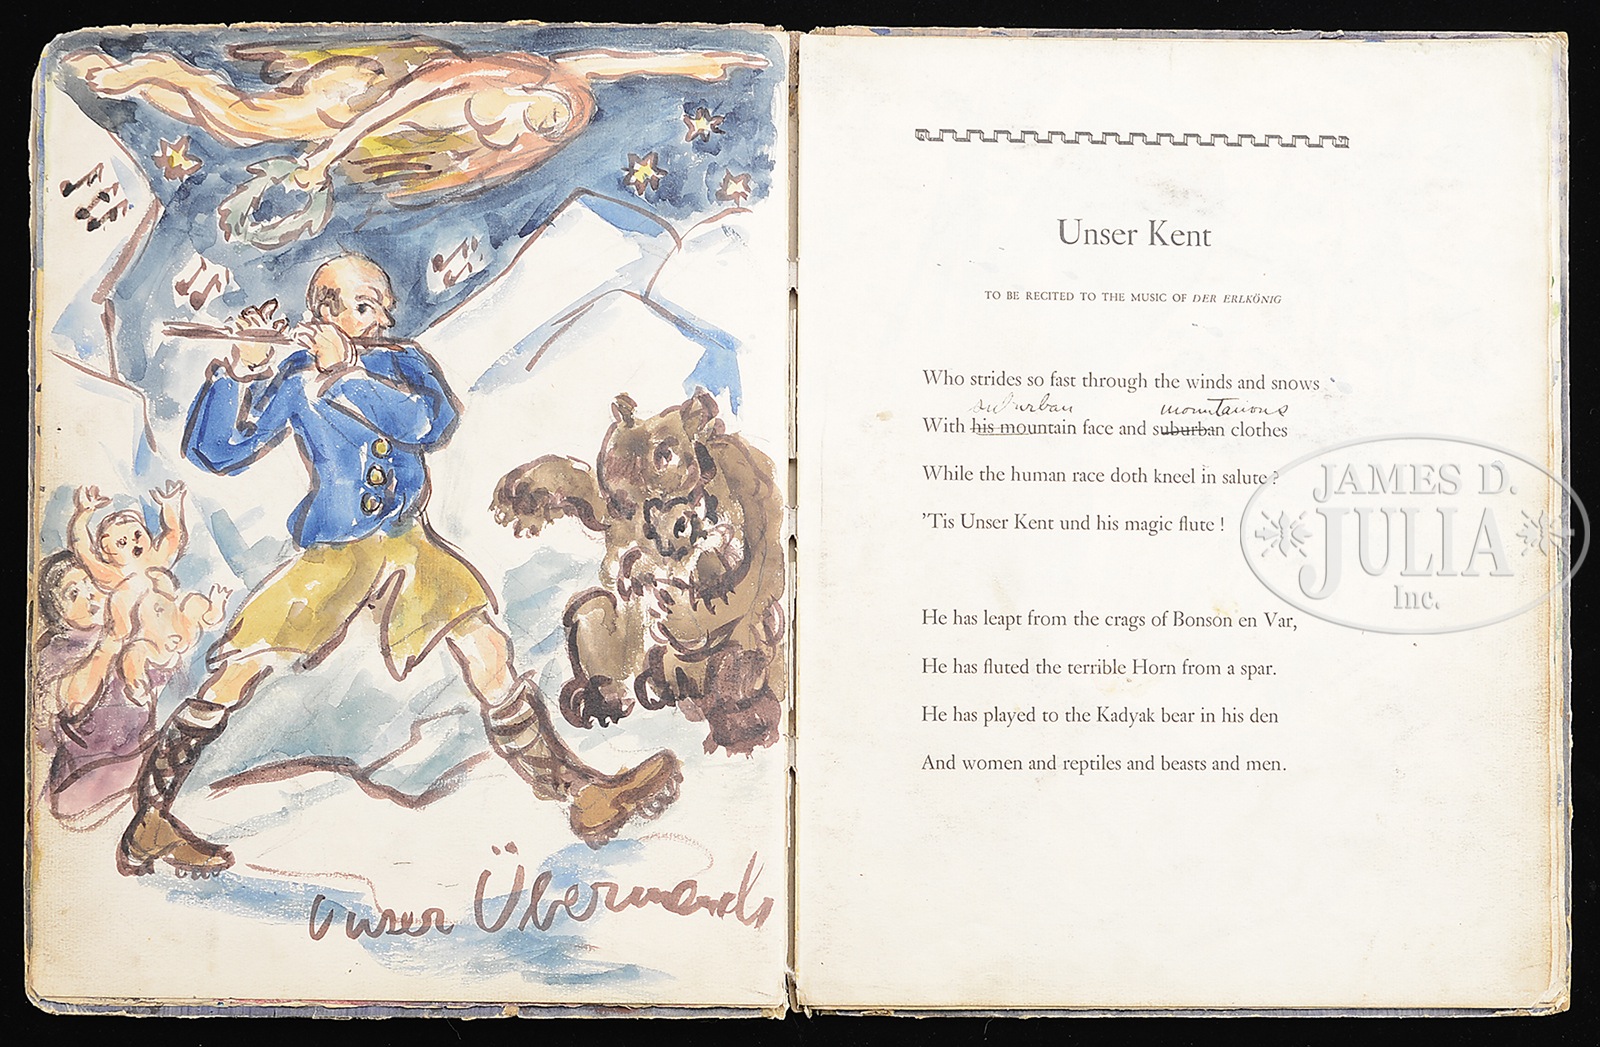 unser Übermensch
Unser Kent
TO BE RECITED TO THE MUSIC OF DER ERLKÖNIG
Who strides so fast through the winds and snows
suburban mountainous
With his mountain face and suburban clothes
While the human race doth kneel in salute?
'Tis Unser Kent und his magic flute!
He has leapt from the crags of Bonson en Var,
He has fluted the terrible Horn from a spar.
He has played to the Kadyak bear in his den
And women and reptiles and beasts and men.
JAMES D.
JULIA
Inc.